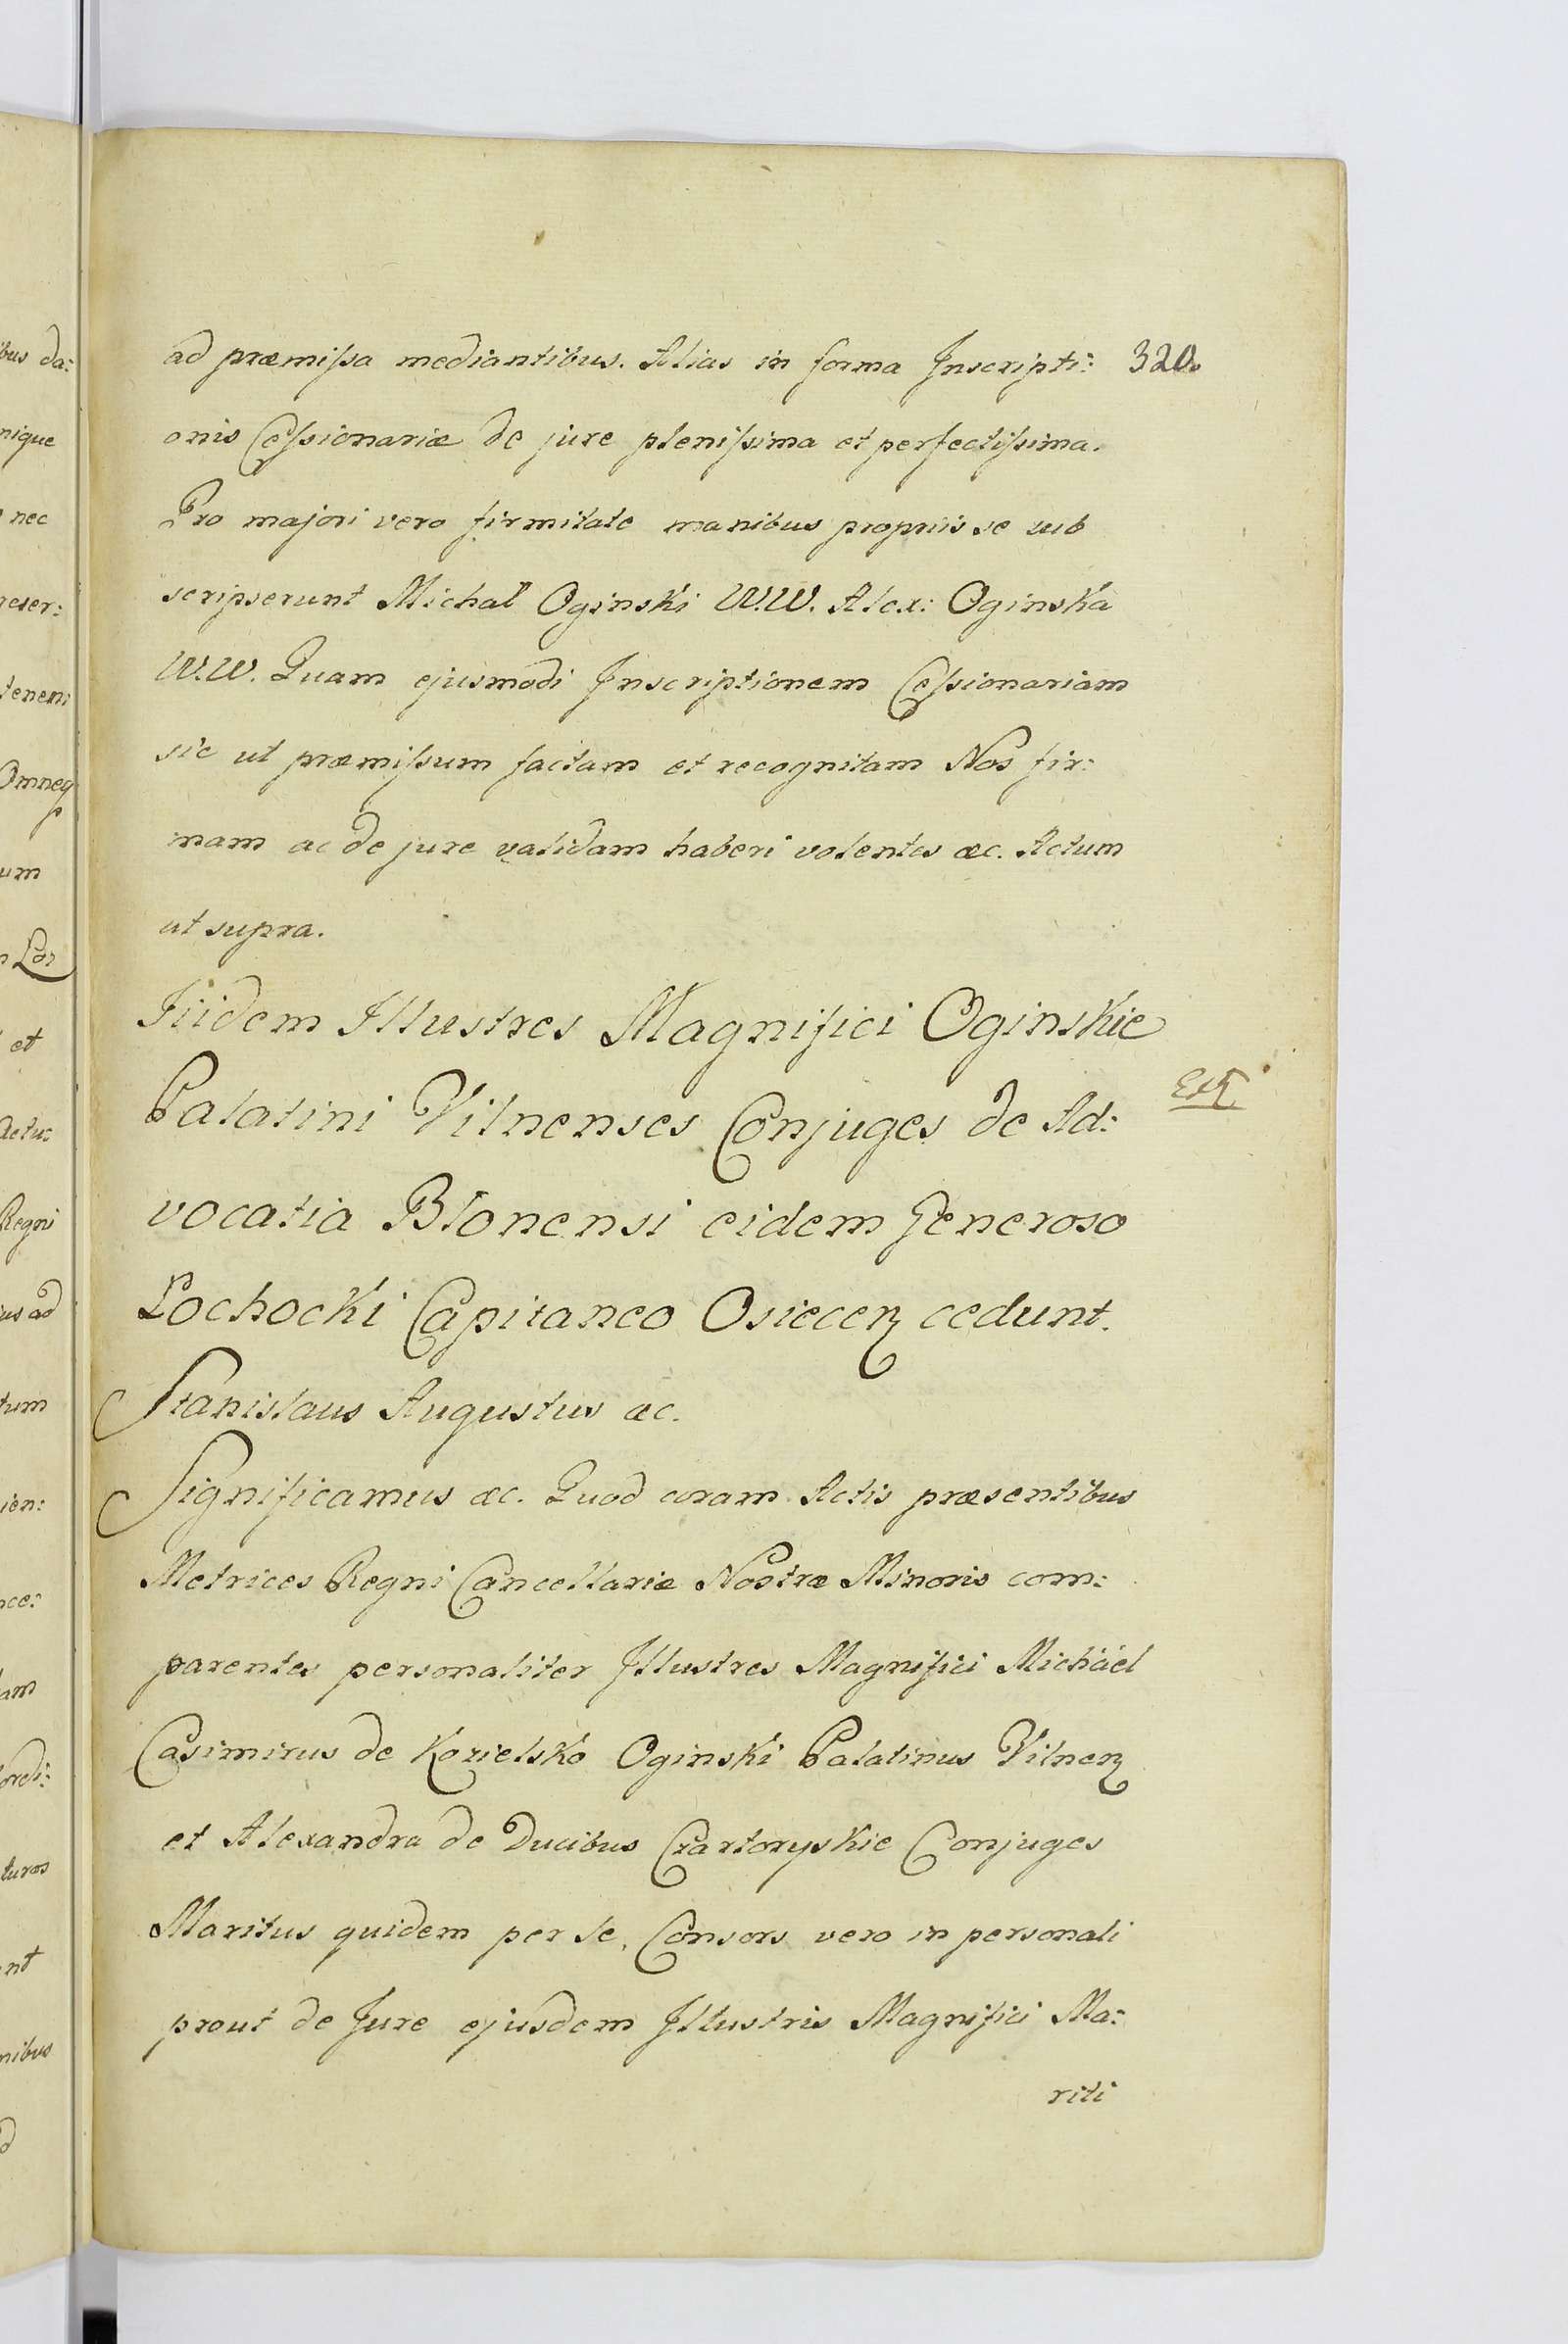 ad præmissa mediantibus. Alias in forma Inscripti: 320.
onis Cessionariæ de jure plenissima et perfectissima.
Pro majori vero firmitate manibus propriis se sub
scripserunt Michał Oginski W.W. Alex: Oginska
W.W. Quam ejusmodi Inscriptionem Cessionariam
sic ut præmissum factam et recognitam Nos fir:
mam ac de jure validam haberi volentes &c. Actum
ut supra.
Iiidem Illustres Magnifici Oginskie
Palatini Vilnenses Conjuges de Ad:
vocatia Błonensi eidem Generoso
Łochocki Capitaneo Osiecen cedunt.
Stanislaus Augustus &c.
Significamus &c. Quod coram Actis præsentibus
Metrices Regni Cancellariæ Nostræ Minoris com:
parentes personaliter Illustres Magnifici Michäel
Casimirus de Kozielsko Oginski Palatinus Vilnen
et Alexandra de Ducibus Czartoryskie Conjuges
Maritus quidem per se, Consors vero in personali
prout de Jure ejusdem Illustris Magnifici Ma:
riti
bus da:
nique
nec
reser:
tenen:
Omneq
um
et
Actu:
Regni
us ad
tum
ien:
ce:
am
ordi:
turos
nt
nibus
d